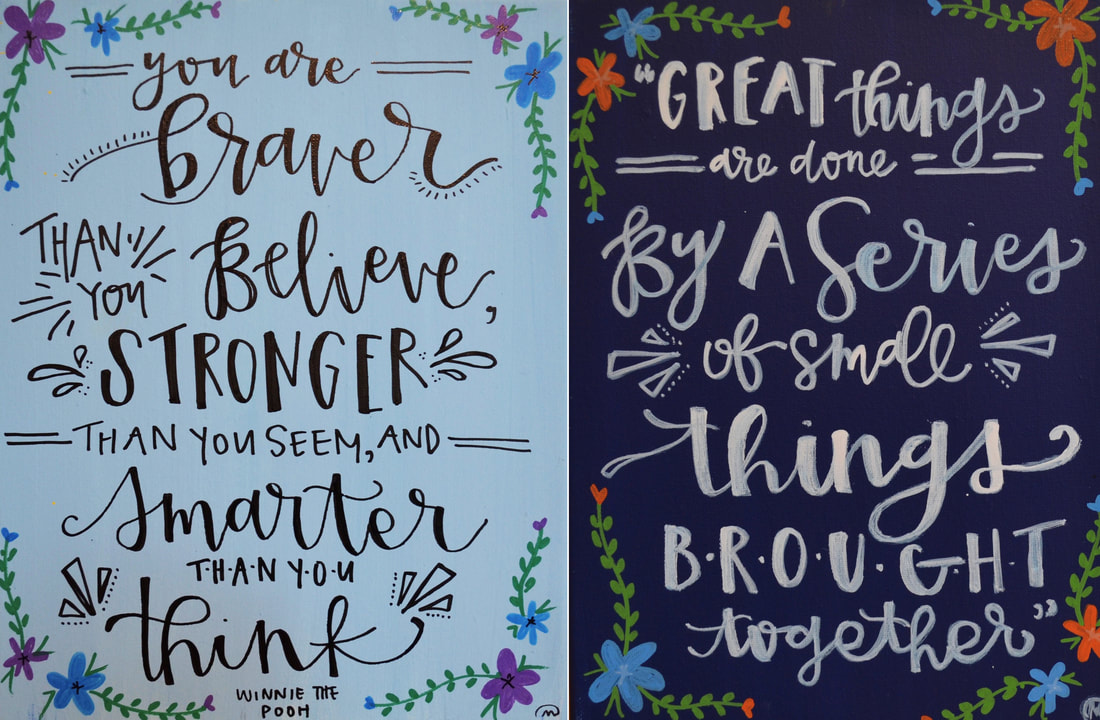 you are
braver
THAN
YOU
Believe,
STRONGER
THAN YOU SEEM, AND
Smarter
T·H·A·N Y·O·U
think
WINNIE THE
POOH
"GREAT things
are done
By A Series
of small
things
B·R·O·U·G·H·T
together"